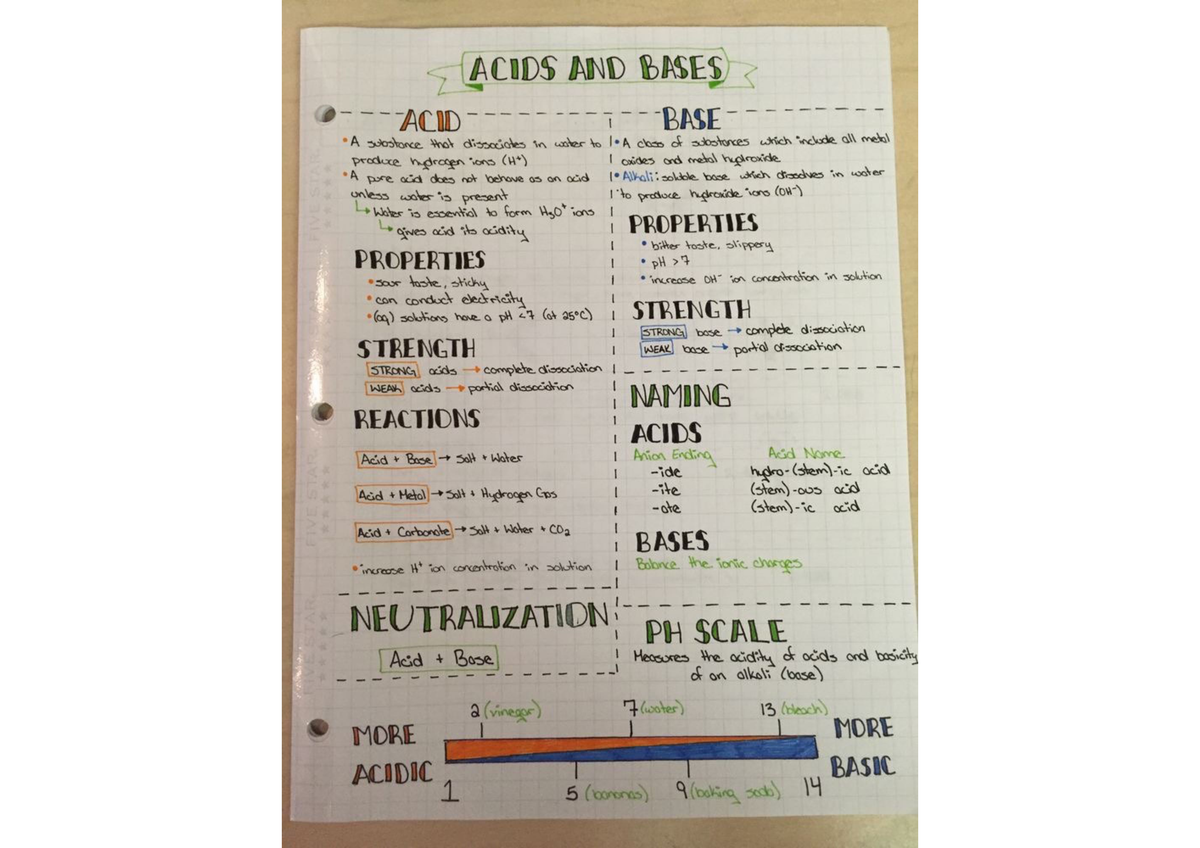 ACIDS AND BASES
ACID
• A substance that dissociates in water to
produce hydrogen ions (H⁺)
• A pure acid does not behave as an acid
unless water is present
↳ Water is essential to form H₃O⁺ ions
↳ gives acid its acidity
PROPERTIES
• sour taste, sticky
• can conduct electricity
• (aq) solutions have a pH <7 (at 25°C)
STRENGTH
STRONG acids → complete dissociation
WEAK acids → partial dissociation
REACTIONS
Acid + Base → Salt + Water
Acid + Metal → Salt + Hydrogen Gas
Acid + Carbonate → Salt + Water + CO₂
• increase H⁺ ion concentration in solution
NEUTRALIZATION
Acid + Base
BASE
• A class of substances which include all metal
oxides and metal hydroxide
• Alkali: soluble base which dissolves in water
to produce hydroxide ions (OH⁻)
PROPERTIES
• bitter taste, slippery
• pH >7
• increase OH⁻ ion concentration in solution
STRENGTH
STRONG base → complete dissociation
WEAK base → partial dissociation
NAMING
ACIDS
Anion Ending Acid Name
-ide hydro-(stem)-ic acid
-ite (stem)-ous acid
-ate (stem)-ic acid
BASES
Balance the ionic charges
PH SCALE
Measures the acidity of acids and basicity
of an alkali (base)
2 (vinegar) 7 (water) 13 (bleach)
MORE ACIDIC
MORE BASIC
1 5 (bananas) 9 (baking soda) 14
FIVE STAR
FIVE STAR
FIVE STAR